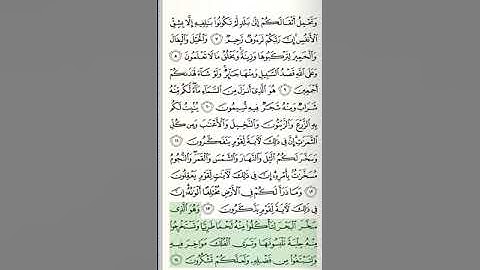 وَتَحْمِلُ أَثْقَالَكُمْ إِلَىٰ بَلَدٍ لَّمْ تَكُونُوا۟ بَـٰلِغِيهِ إِلَّا بِشِقِّ
ٱلْأَنفُسِ إِنَّ رَبَّكُمْ لَرَءُوفٌ رَّحِيمٌ ٧ وَٱلْخَيْلَ وَٱلْبِغَالَ
وَٱلْحَمِيرَ لِتَرْكَبُوهَا وَزِينَةً وَيَخْلُقُ مَا لَا تَعْلَمُونَ ٨
وَعَلَى ٱللَّهِ قَصْدُ ٱلسَّبِيلِ وَمِنْهَا جَآئِرٌ وَلَوْ شَآءَ لَهَدَىٰكُمْ
أَجْمَعِينَ ٩ هُوَ ٱلَّذِىٓ أَنزَلَ مِنَ ٱلسَّمَآءِ مَآءً لَّكُم مِّنْهُ
شَرَابٌ وَمِنْهُ شَجَرٌ فِيهِ تُسِيمُونَ ١٠ يُنۢبِتُ لَكُم
بِهِ ٱلزَّرْعَ وَٱلزَّيْتُونَ وَٱلنَّخِيلَ وَٱلْأَعْنَـٰبَ وَمِن كُلِّ
ٱلثَّمَرَٰتِ إِنَّ فِى ذَٰلِكَ لَـَٔايَةً لِّقَوْمٍ يَتَفَكَّرُونَ ١١
وَسَخَّرَ لَكُمُ ٱلَّيْلَ وَٱلنَّهَارَ وَٱلشَّمْسَ وَٱلْقَمَرَ وَٱلنُّجُومُ
مُسَخَّرَٰتٌۢ بِأَمْرِهِۦٓ إِنَّ فِى ذَٰلِكَ لَـَٔايَـٰتٍ لِّقَوْمٍ يَعْقِلُونَ
١٢ وَمَا ذَرَأَ لَكُمْ فِى ٱلْأَرْضِ مُخْتَلِفًا أَلْوَٰنُهُۥٓ إِنَّ
فِى ذَٰلِكَ لَـَٔايَةً لِّقَوْمٍ يَذَّكَّرُونَ ١٣ وَهُوَ ٱلَّذِى
سَخَّرَ ٱلْبَحْرَ لِتَأْكُلُوا۟ مِنْهُ لَحْمًا طَرِيًّا وَتَسْتَخْرِجُوا۟
مِنْهُ حِلْيَةً تَلْبَسُونَهَا وَتَرَى ٱلْفُلْكَ مَوَاخِرَ فِيهِ
وَلِتَبْتَغُوا۟ مِن فَضْلِهِۦ وَلَعَلَّكُمْ تَشْكُرُونَ ١٤